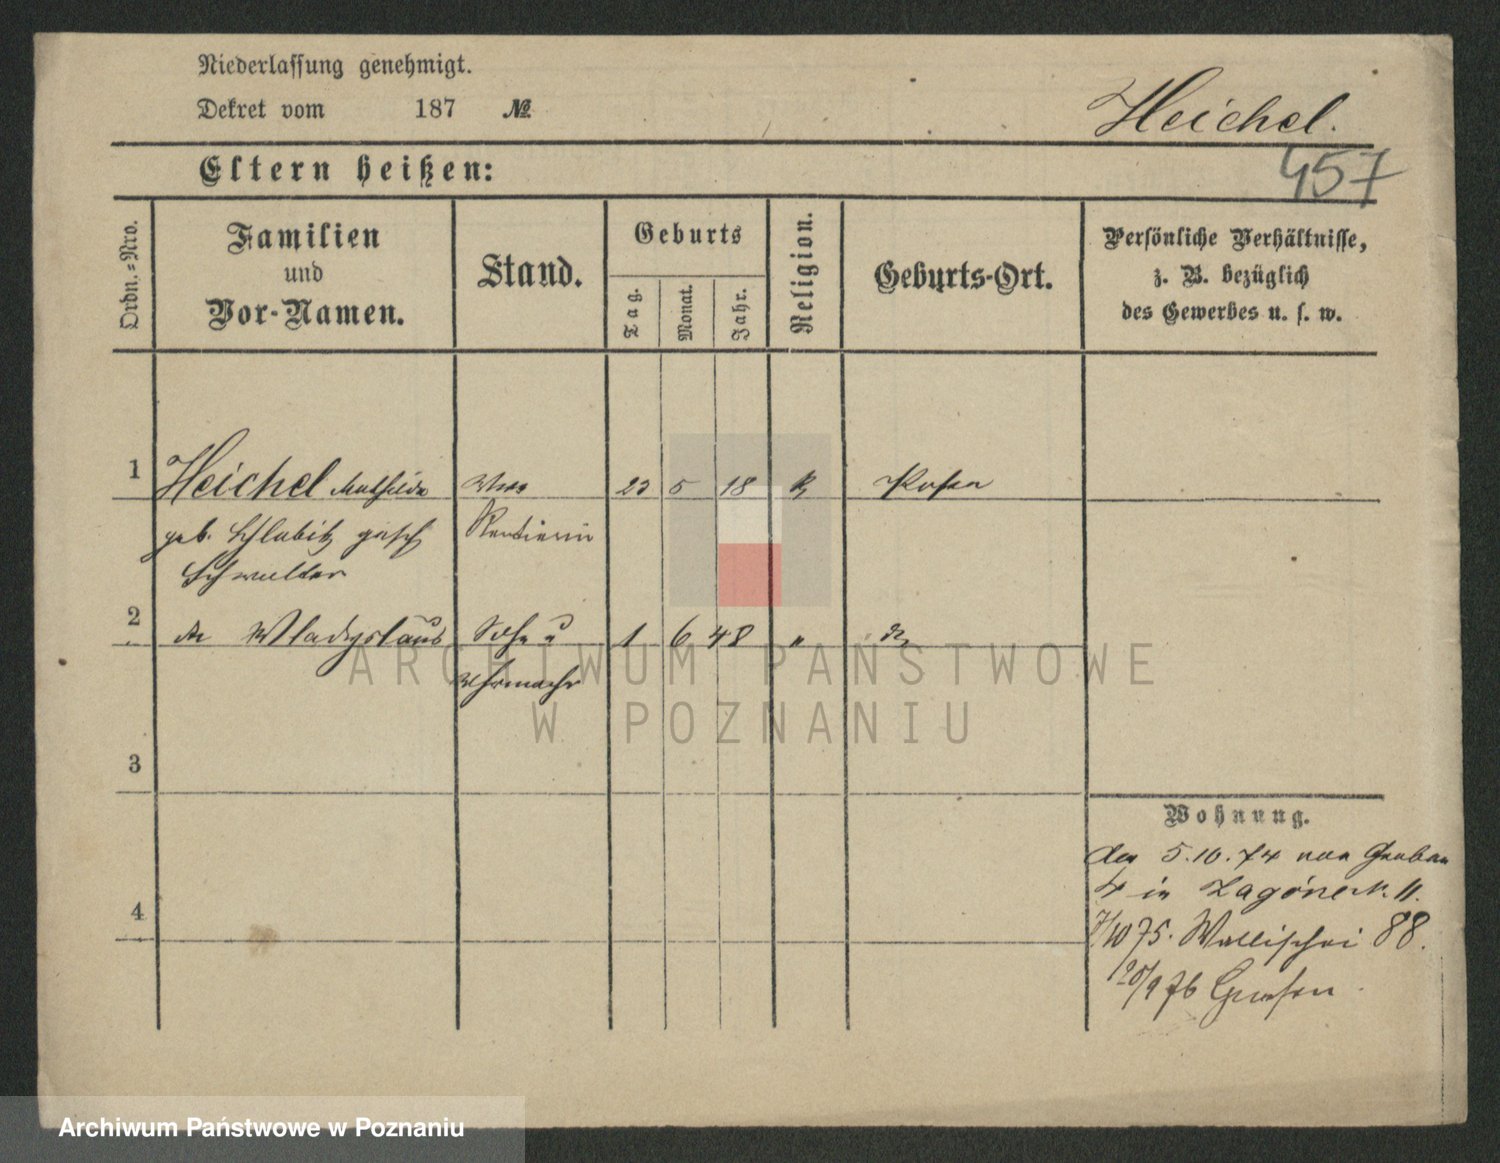 Niederlassung genehmigt.
Dekret vom 187 №
Heichel.
457
Eltern heißen:
Ordn.-Nro.
Familien
und
Vor-Namen.
Stand.
Geburts
Tag.
Monat.
Jahr.
Religion.
Geburts-Ort.
Persönliche Verhältnisse,
z. B. bezüglich
des Gewerbes u. s. w.
1 Heichel Mathilde 23 5 18 k Posen
geb. Schlabitz gesch Rentierin
2 Wladyslaus Sohn u 1 6 48 "
Uhrmacher
3
4
Wohnung.
den 5.10.74 von Graben
4 in Zagórze 11.
7/10 75. Wallischei 88.
20/9 76 Gnesen
ARCHIWUM PAŃSTWOWE
W POZNANIU
Archiwum Państwowe w Poznaniu